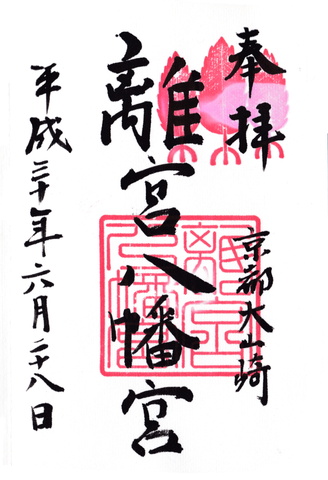 奉拝
京都大山崎
離宮八幡宮
平成三十年六月二十八日
離宮八幡宮